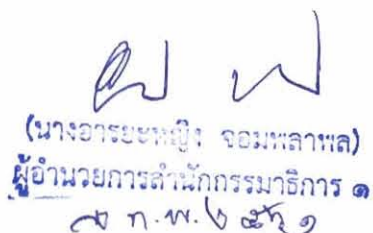 (นางอารยะหญิง จอมพลาพล)
ผู้อำนวยการสำนักกรรมาธิการ ๑
ก.พ.